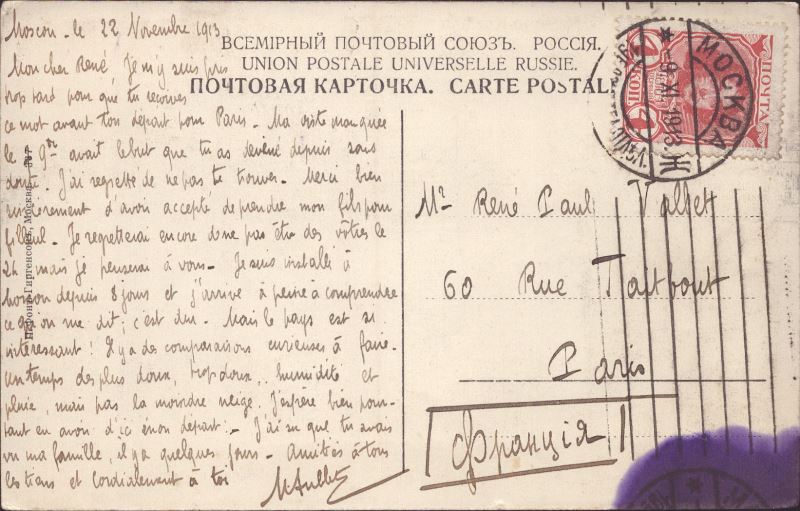 Moscou - le 22 Novembre 1913
ВСЕМІРНЫЙ ПОЧТОВЫЙ СОЮЗЪ. РОССІЯ.
UNION POSTALE UNIVERSELLE RUSSIE.
ПОЧТОВАЯ КАРТОЧКА. CARTE POSTALE
Mon cher René Je m'y suis pris
trop tard pour que tu reçoives
ce mot avant ton départ pour Paris. Ma visite manquée
le 9 avait le but que tu as deviné depuis sans
doute. J'ai regretté de ne pas te trouver. Merci bien
sincèrement d'avoir accepté de prendre mon fils pour
filleul. Je regretterai encore donc pas être des vôtres le
24 mais je penserai à vous - Je suis installé à
Moscou depuis 8 jours et j'arrive à peine à comprendre
ce qu'on me dit; c'est dur. Mais le pays est si
intéressant! Il y a des comparaisons curieuses à faire.
Un temps des plus doux, trop doux.. humidité et
pluie, mais pas la moindre neige. J'espère bien pour-
tant en avoir d'ici mon départ! - J'ai su que tu avais
vu ma famille, il y a quelques jours - Amitiés à tous
les tiens et cordialement à toi
Mr René Paul Vallet
60 Rue Taitbout
Paris
Франція
МОСКВА
-9 XI 1913
Ж
ПОЧТА
КОП